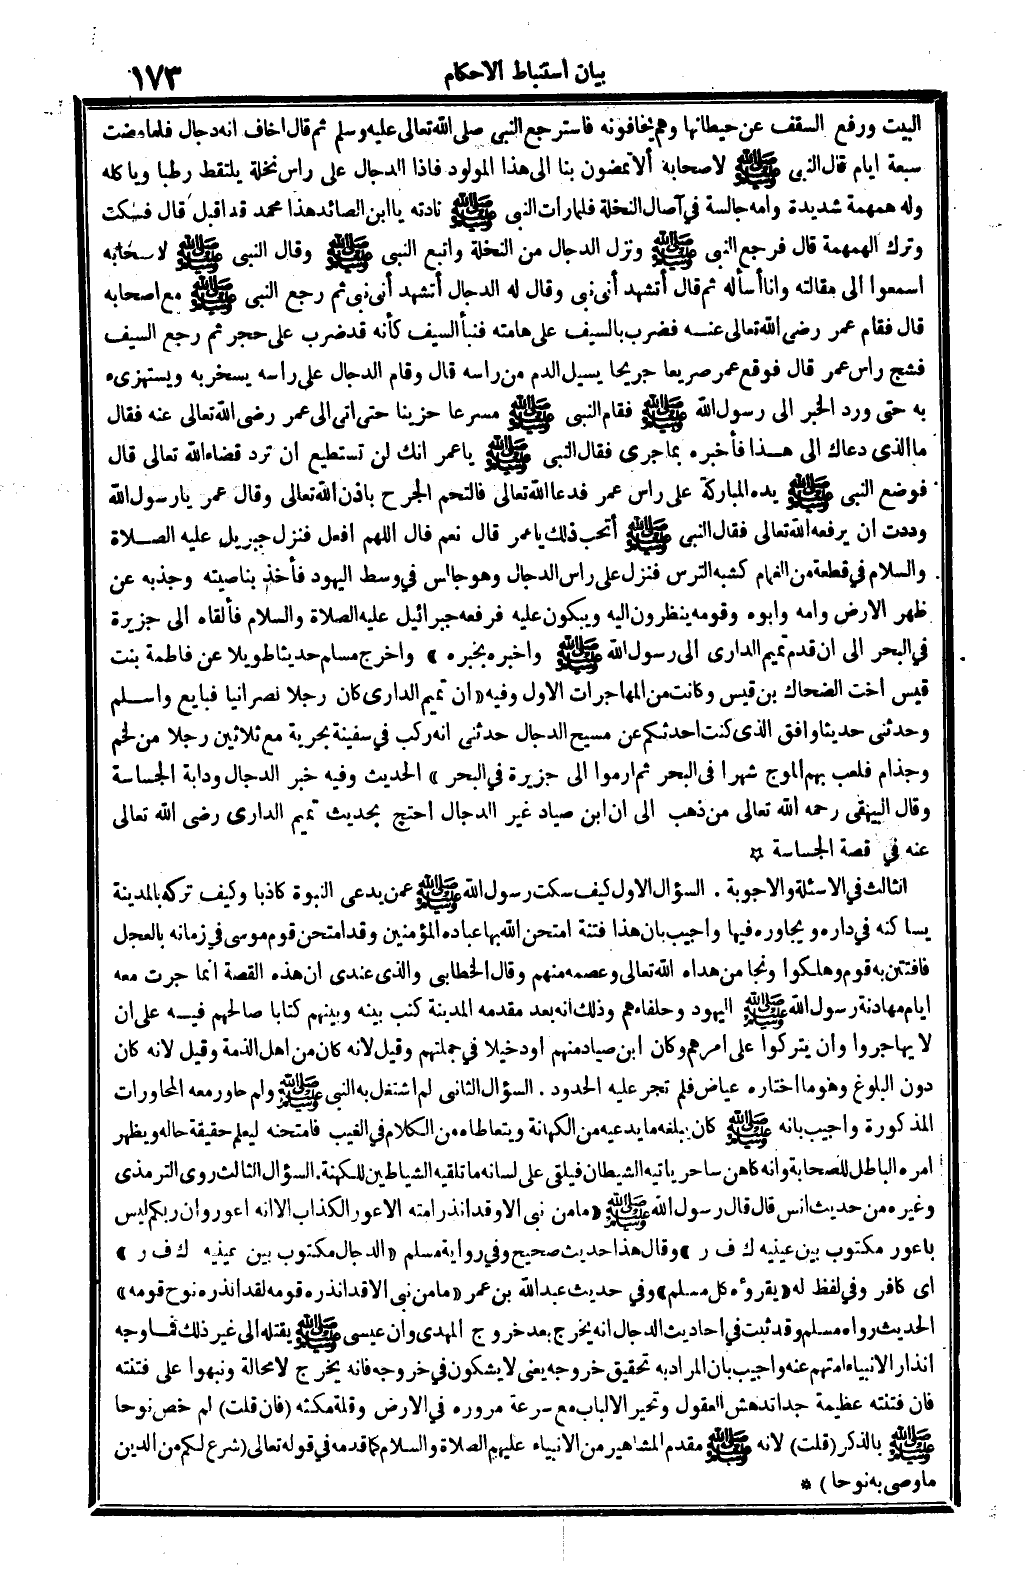 بيان استنباط الاحكام
١٧٣
البيت ورفع السقف عن حيطانها وهم يخافونه فاسترجع النبى صلى الله تعالى عليه وسلم ثم قال اخاف انه دجال فلما مضت
سبعة ايام قال النبى ﷺ لاصحابه ألا تمضون بنا الى هذا المولود فاذا الدجال على راس نخلة يلتقط رطبا وياكله
وله همهمة شديدة وامه جالسة في آصال النخلة فلما رات النبى ﷺ نادته يا ابن الصائد هذا محمد قد اقبل قال فسكت
وترك الهمهمة قال فرجع النبى ﷺ ونزل الدجال من النخلة واتبع النبى ﷺ وقال النبى ﷺ لاصحابه
اسمعوا الى مقالته وانا أسأله ثم قال أتشهد أنى نبى وقال له الدجال أتشهد أنى نبى ثم رجع النبى ﷺ مع اصحابه
قال فقام عمر رضى الله تعالى عنــه فضرب بالسيف على هامته فنبأ السيف كأنه قد ضرب على حجر ثم رجع السيف
فشج راس عمر قال فوقع عمر صريعا جريحا يسيل الدم من راسه قال وقام الدجال على راسه يسخر به ويستهزىء
به حتى ورد الخبر الى رسول الله ﷺ فقام النبى ﷺ مسرعا حزينا حتى اتى الى عمر رضى الله تعالى عنه فقال
ما الذى دعاك الى هــذا فأخبره بما جرى فقال النبى ﷺ يا عمر انك لن تستطيع ان ترد قضاء الله تعالى قال
فوضع النبى ﷺ يده المباركة على راس عمر فدعا الله تعالى فالتحم الجرح باذن الله تعالى وقال عمر يا رسول الله
وددت ان يرفعه الله تعالى فقال النبى ﷺ أتحب ذلك يا عمر قال نعم قال اللهم افعل فنزل جبريل عليه الصــلاة
والسلام في قطعة من الغمام كشبه الترس فنزل على راس الدجال وهو جالس في وسط اليهود فأخذ بناصيته وجذبه عن
ظهر الارض وامه وابوه وقومه ينظرون اليه ويبكون عليه فرفعه جبرائيل عليه الصلاة والسلام فألقاه الى جزيرة
في البحر الى ان قدم تميم الدارى الى رسول الله ﷺ واخبره بخبره » واخرج مسلم حديثا طويلا عن فاطمة بنت
قيس اخت الضحاك بن قيس وكانت من المهاجرات الاول وفيه « ان تميم الدارى كان رجلا نصرانيا فبايع واســلم
وحدثنى حديثا وافق الذى كنت احدثكم عن مسيح الدجال حدثنى انه ركب في سفينة بحرية مع ثلاثين رجلا من لخم
وجذام فلعب بهم الموج شهرا فى البحر ثم ارموا الى جزيرة في البحر » الحديث وفيه خبر الدجال ودابة الجساسة
وقال البيهقى رحمه الله تعالى من ذهب الى ان ابن صياد غير الدجال احتج بحديث تميم الدارى رضى الله تعالى
عنه في قصة الجساسة ✩
الثالث في الاسئلة والاجوبة . السؤال الاول كيف سكت رسول الله ﷺ عمن يدعى النبوة كاذبا وكيف تركه بالمدينة
يساكنه في داره ويجاوره فيها واجيب بان هذا فتنة امتحن الله بها عباده المؤمنين وقد امتحن قوم موسى في زمانه بالعجل
فافتتن به قوم وهلكوا ونجا من هداه الله تعالى وعصمه منهم وقال الخطابى والذى عندى ان هذه القصة انما جرت معه
ايام مهادنة رسول الله ﷺ اليهود وحلفاءهم وذلك انه بعد مقدمه المدينة كتب بينه وبينهم كتابا صالحهم فيــه على ان
لا يهاجروا وان يتركوا على امرهم وكان ابن صياد منهم او دخيلا في جملتهم وقيل لانه كان من اهل الذمة وقيل لانه كان
دون البلوغ وهو ما اختاره عياض فلم تجر عليه الحدود . السؤال الثانى لم اشتغل به النبى ﷺ ولم حاور معه المحاورات
المذكورة واجيب بانه ﷺ كان يبلغه ما يدعيه من الكهانة ويتعاطاه من الكلام في الغيب فامتحنه ليعلم حقيقة حاله ويظهر
امره الباطل للصحابة وانه كاهن ساحر ياتيه الشيطان فيلقى على لسانه ما تلقيه الشياطين للكهنة. السؤال الثالث روى الترمذى
وغيره من حديث انس قال قال رسول الله ﷺ « ما من نبى الا وقد انذر امته الاعور الكذاب الا انه اعور وان ربكم ليس
باعور مكتوب بين عينيه ك ف ر » وقال هذا حديث صحيح وفي رواية مسلم « الدجال مكتوب بين عينيه ك ف ر »
اى كافر وفي لفظ له « يقرؤه كل مسلم » وفي حديث عبد الله بن عمر « ما من نبى الا قد انذره قومه لقد انذره نوح قومه »
الحديث رواه مسلم وقد ثبت في احاديث الدجال انه يخرج بعد خروج المهدى وان عيسى ﷺ يقتله الى غير ذلك فما وجه
انذار الانبياء امتهم عنه واجيب بان المراد به تحقيق خروجه يعنى لا يشكون في خروجه فانه يخرج لا محالة ونبهوا على فتنته
فان فتنته عظيمة جدا تدهش العقول وتحير الالباب مع سرعة مروره في الارض وقلة مكثه (فان قلت) لم خص نوحا
ﷺ بالذكر (قلت) لانه ﷺ مقدم المشاهير من الانبياء عليهم الصلاة والسلام كما قدمه في قوله تعالى (شرع لكم من الدين
ما وصى به نوحا) *